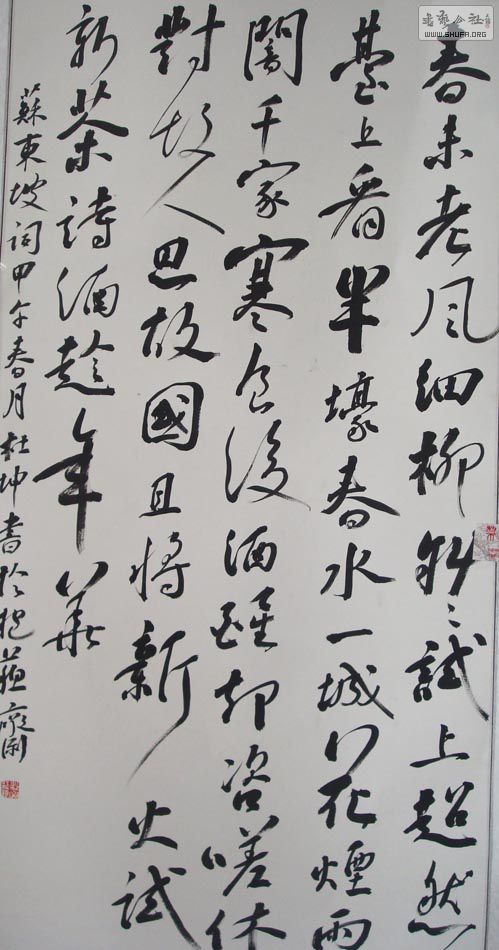 春未老风細柳斜〻試上超然
臺上看半壕春水一城花煙雨
闇千家寒食後酒醒却咨嗟休
對故人思故國且將新火試
新茶詩酒趁年華
蘇東坡詞甲午春月杜坤書於抱
書藝公社
WWW.SHUFA.ORG